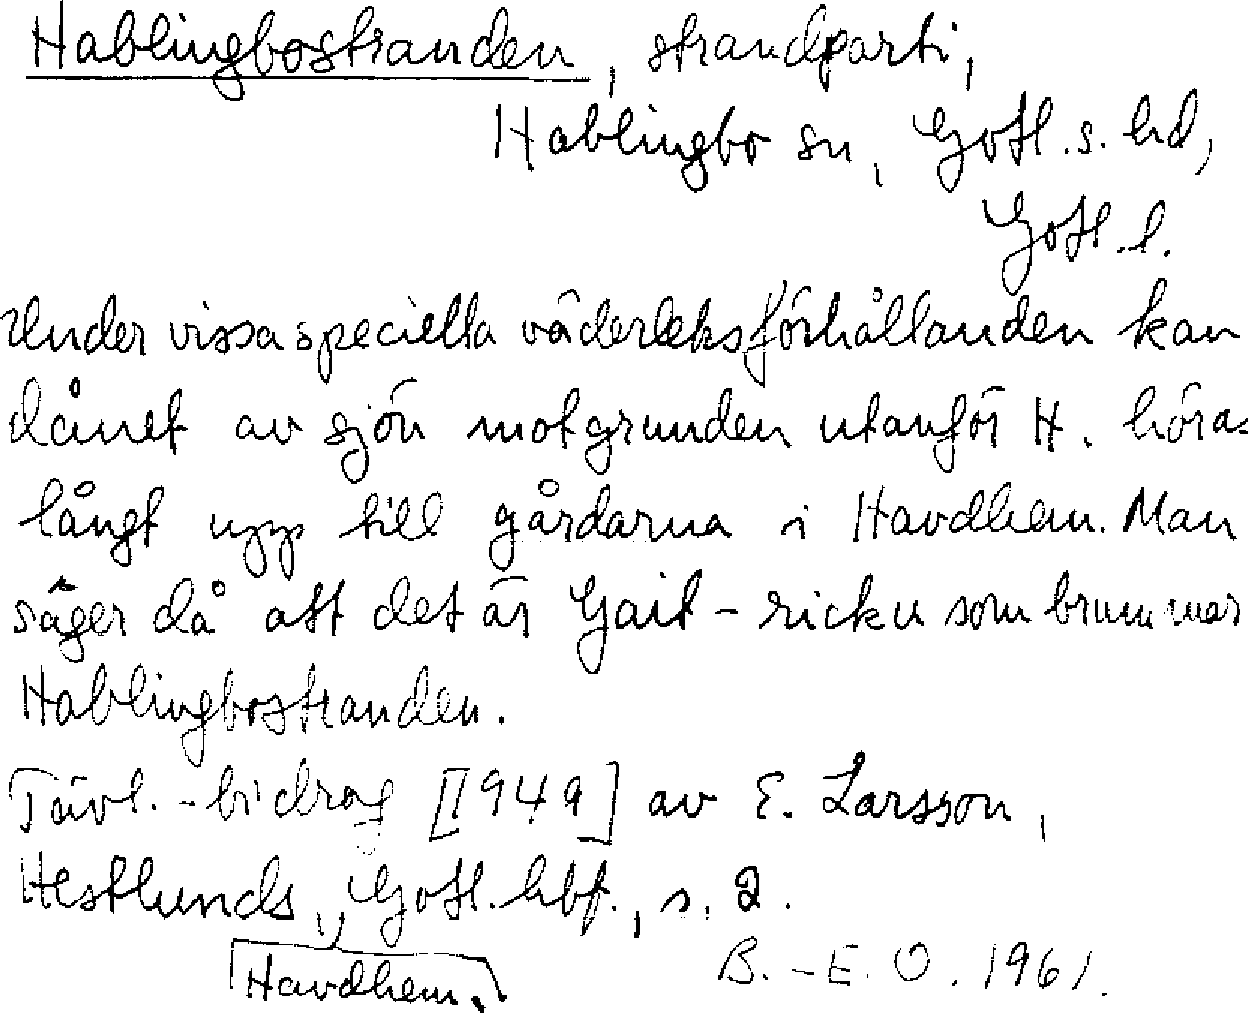 Hablingbostranden, strandparti,
Hablingbo sn, Gotl. s. hd,
Gotl. l.
Under vissa speciella väderleksförhållanden kan
dånet av sjön mot grunden utanför H. höras
långt upp till gårdarna i Havdhem. Man
säger då att det är Gait-ricku som brummar
Hablingbostranden.
Tävl.-bidrag [1949] av E. Larsson,
Hestlunds, Gotl. hbf., s. 2.
Havdhem,
B.-E. O. 1961.